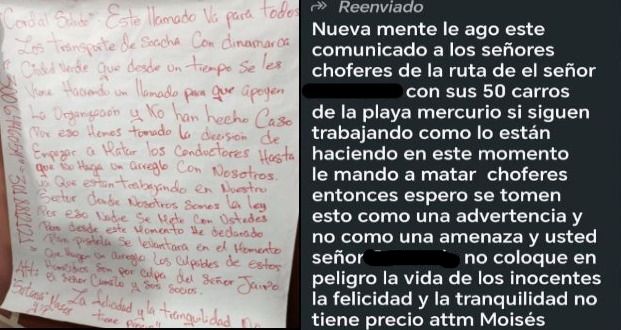 "Cordial Saludo" Este llamado Va para todos
Los transporte de Soacha Con dinamarca
Ciudad Verde que desde un tiempo se les
Viene Haciendo un llamado para que apoyen
La Organización y No han hecho Caso
Por eso Hemos tomado la decisión de
Empezar a Matar los Conductores Hasta
que No Haga un arreglo Con Nosotros.
ya Que estan trabajando en Nuestro
Sector donde Nosotros Somos la ley
Por eso Nadie Se Mete Con Ustedes
Pues desde este Momento He declarado
Plan pistola Se levantara en el Momento
Que Hagan un arreglo Los Culpables de estos
son por culpa del Señor Jairo
Att: El Señor Camilo y Sus Socios.
"Satanas" La felicidad y la tranquilidad No
tiene
Reenviado
Nueva mente le ago este
comunicado a los señores
choferes de la ruta de el señor
con sus 50 carros
de la playa mercurio si siguen
trabajando como lo están
haciendo en este momento
le mando a matar choferes
entonces espero se tomen
esto como una advertencia y
no como una amenaza y usted
señor no coloque en
peligro la vida de los inocentes
la felicidad y la tranquilidad no
tiene precio attm Moisés